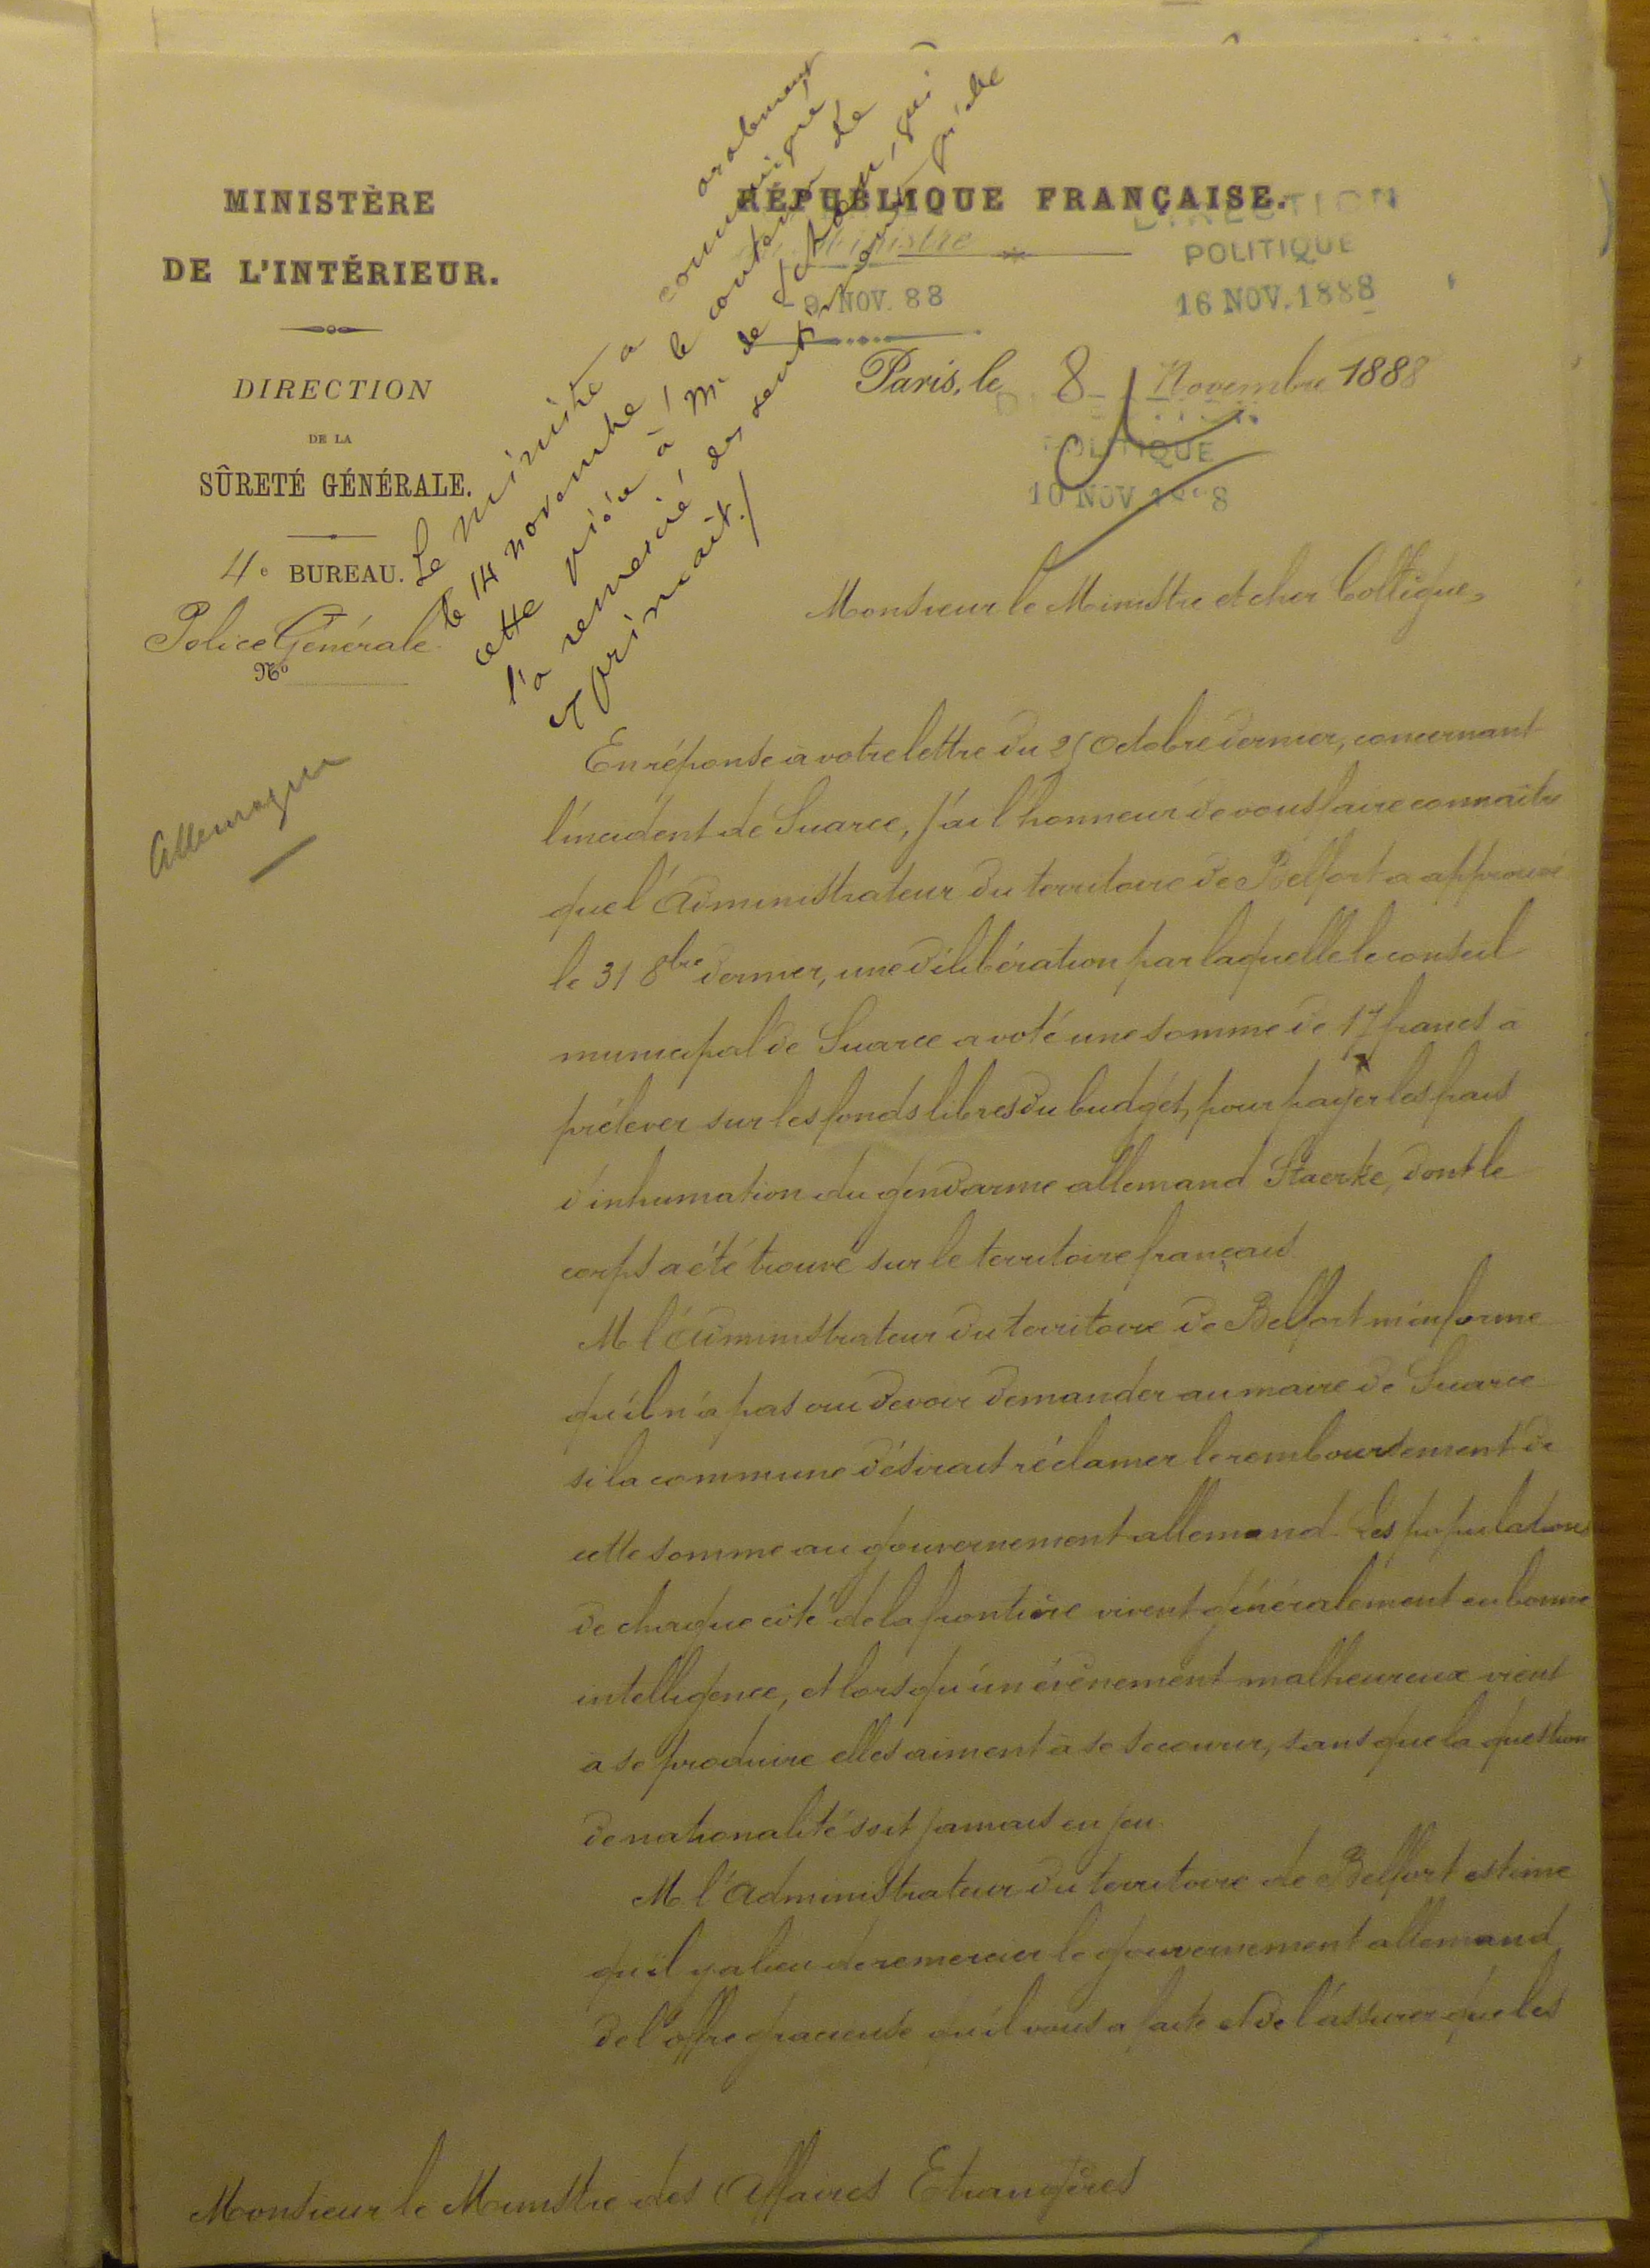 MINISTÈRE
DE L'INTÉRIEUR.
DIRECTION
DE LA
SÛRETÉ GÉNÉRALE.
4e BUREAU.
Police Générale.
No
Allemagne
Le ministre a oralement communiqué
le 14 novembre le contenu de
cette pièce à M de Schoen, qui
l'a remercié des sentiments qu'elle
exprimait./
RÉPUBLIQUE FRANÇAISE.
Ministre
9 NOV. 88
DIRECTION
POLITIQUE
16 NOV. 1888
Paris, le 8 Novembre 1888
POLITIQUE
10 NOV. 1888
Monsieur le Ministre et cher Collègue,
En réponse à votre lettre du 25 Octobre dernier, concernant
l'incident de Suarce, j'ai l'honneur de vous faire connaître
que l'Administrateur du territoire de Belfort a approuvé
le 31 8bre dernier, une délibération par laquelle le conseil
municipal de Suarce a voté une somme de 17 francs à
prélever sur les fonds libres du budget, pour payer les frais
d'inhumation du gendarme allemand Staerke, dont le
corps a été trouvé sur le territoire français
M l'Administrateur du territoire de Belfort m'informe
qu'il n'a pas cru devoir demander au maire de Suarce
si la commune désirait réclamer le remboursement de
cette somme au gouvernement allemand. Les populations
de chaque côté de la frontière vivent généralement en bonne
intelligence, et lorsqu'un évènement malheureux vient
à se produire elles aiment à se secourir, sans que la question
de nationalité soit jamais en jeu.
M l'Administrateur du territoire de Belfort estime
qu'il y a lieu de remercier le gouvernement allemand
de l'offre gracieuse qu'il vous a faite et de l'assurer que les
Monsieur le Ministre des Affaires Etrangères